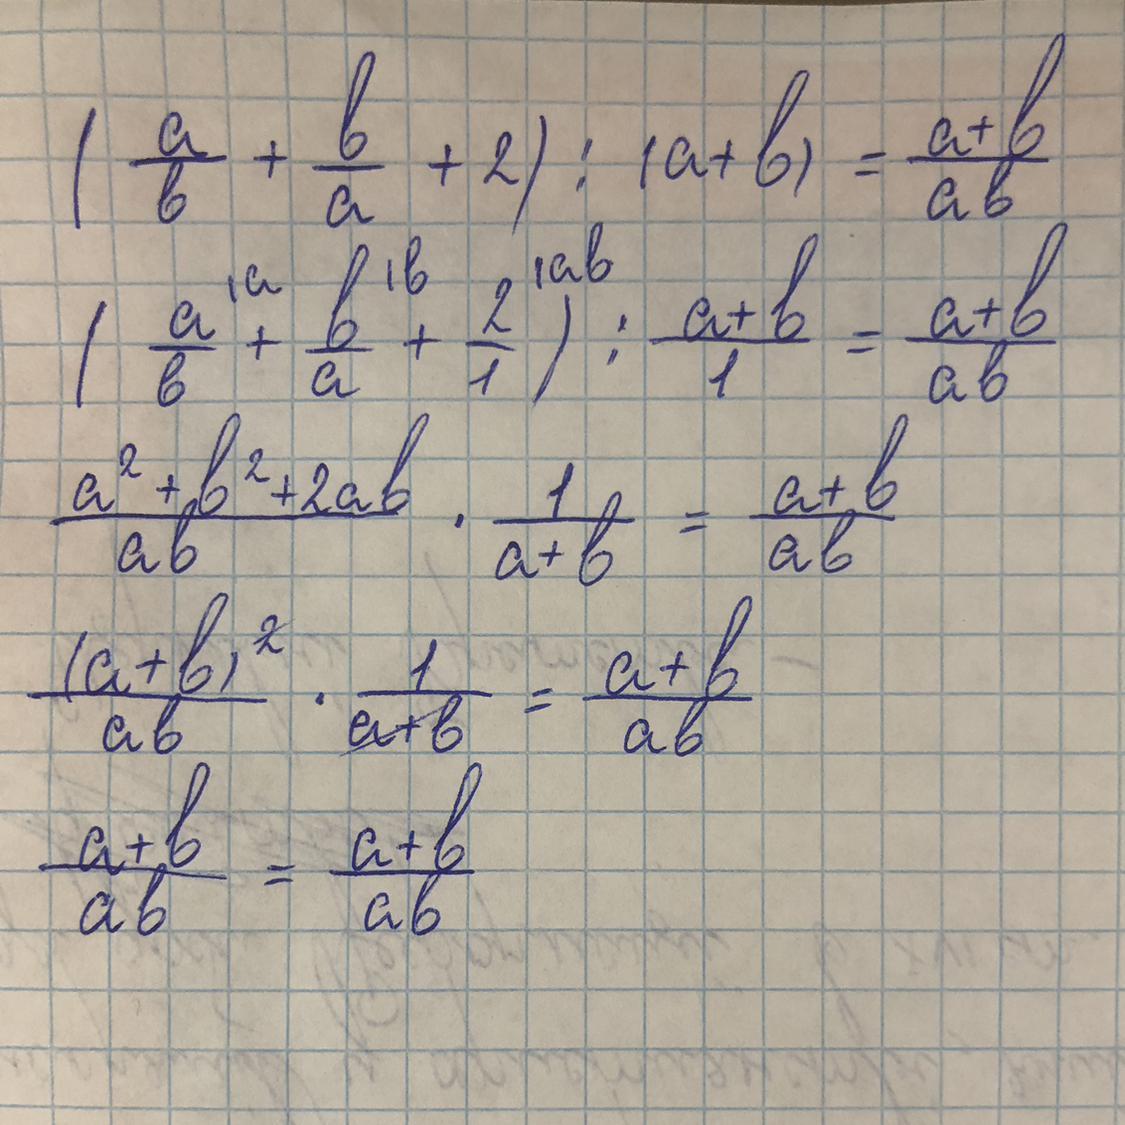 ( a/b + b/a + 2) : (a+b) = a+b/ab
( a/b |a + b/a |b + 2/1 |ab ) : a+b/1 = a+b/ab
a²+b²+2ab/ab · 1/a+b = a+b/ab
(a+b)²/ab · 1/a+b = a+b/ab
a+b/ab = a+b/ab